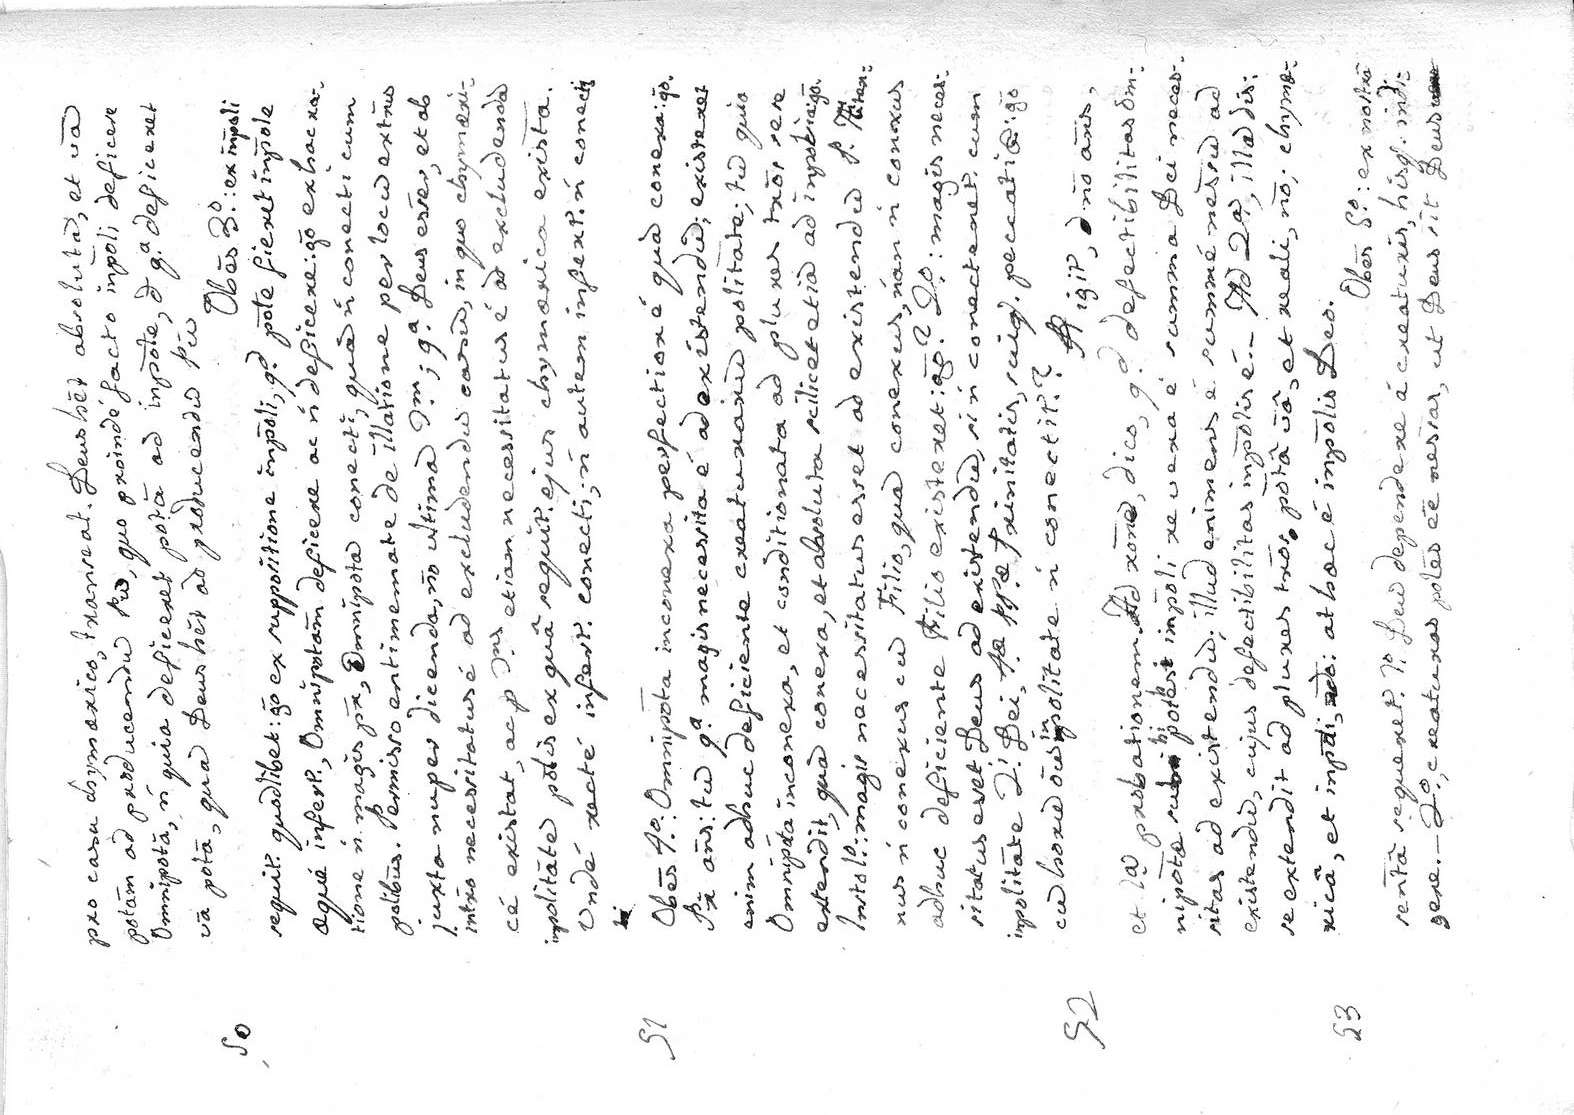 pro casu chymærico, transeat. Deus hèt absolutā, et vā
potām ad producendū Po, quo proindé facto inpoli deficere
Omnipotā, ń quia deficeret potā ad inpole, d qª deficeret
vā potā, quā Deus hèt ad producendū Po
50
Obēs 3º: ex inpoli
sequit. quodlibet: gō ex suppositione inpoli, qd pole fieret inpole
aqué infert., Omnipotām deficere ac ń deficere: gō ex hac ra-
tione ń magis pr̄, Omnipota conecti, quā ń conecti cum
polibūs. Permisso entimemate de illatione per locū extr̄us
juxta nuper dicenda, nō ultima 9m; qª Deus esset, et ab
intrō necessitatus é ad excludendū casū, in quo chymæri-
cé existat, ac p 9us etiam necessitatus é ad excludendā
inpolitāte polis ex quā sequit. ejus chymærica exista.
Undé recté infert. conecti; ń autem infert. ń conecti
51
Obēs 4º: Omnipota inconexa perfectior é quā conexa: gō.
Pr̄ ańs: tū qª magis necessita é ad existendū; existeret
enim adhuc deficiente creaturarū politate; tū quia
Omnipota inconexa, et conditionata ad plures tr̄os sese
extendit, quā conexa, et absoluta scilicet etiā ad inpolia: gō.
Insto 1º: magis necessitatus esset ad existendū P. Æter-
nus ń conexus cū Filio, quā conexus, nam ń conexus
adhuc deficiente Filio existeret: gō? 2º: magis neces-
sitatus esset Deus ad existendū, si ń conecteret. cum
inpolitāte 2i Dei, 4æ ppæ Trinitatis, suiq. peccati &: gō
cū horū oīum inpolitate ń conectit.?
52
Rp igit., d nō ańs,
et 1ā probationem. Ad rōnē, dico, qd defectibilitas Om-
nipotæ sub hip potest inpoli re vera é summa Dei neces-
sitas ad existendū: illud enim ens é summé nessrū ad
existendū, cujus defectibilitas inpolis é. – Ad 2ā, illa dis:
se extendit ad plures tr̄os potā vā, et reali, nō; chymæ-
ricā, et inpoli, do: at hoc é inpolis Deo.
53
Obēs 5º: ex nostrā
sentā sequeret. 1º Deū dependere á creaturis, hisq. indi-
gere. – 2º, creaturas polēs eē nessrias, ut Deus sit Deus